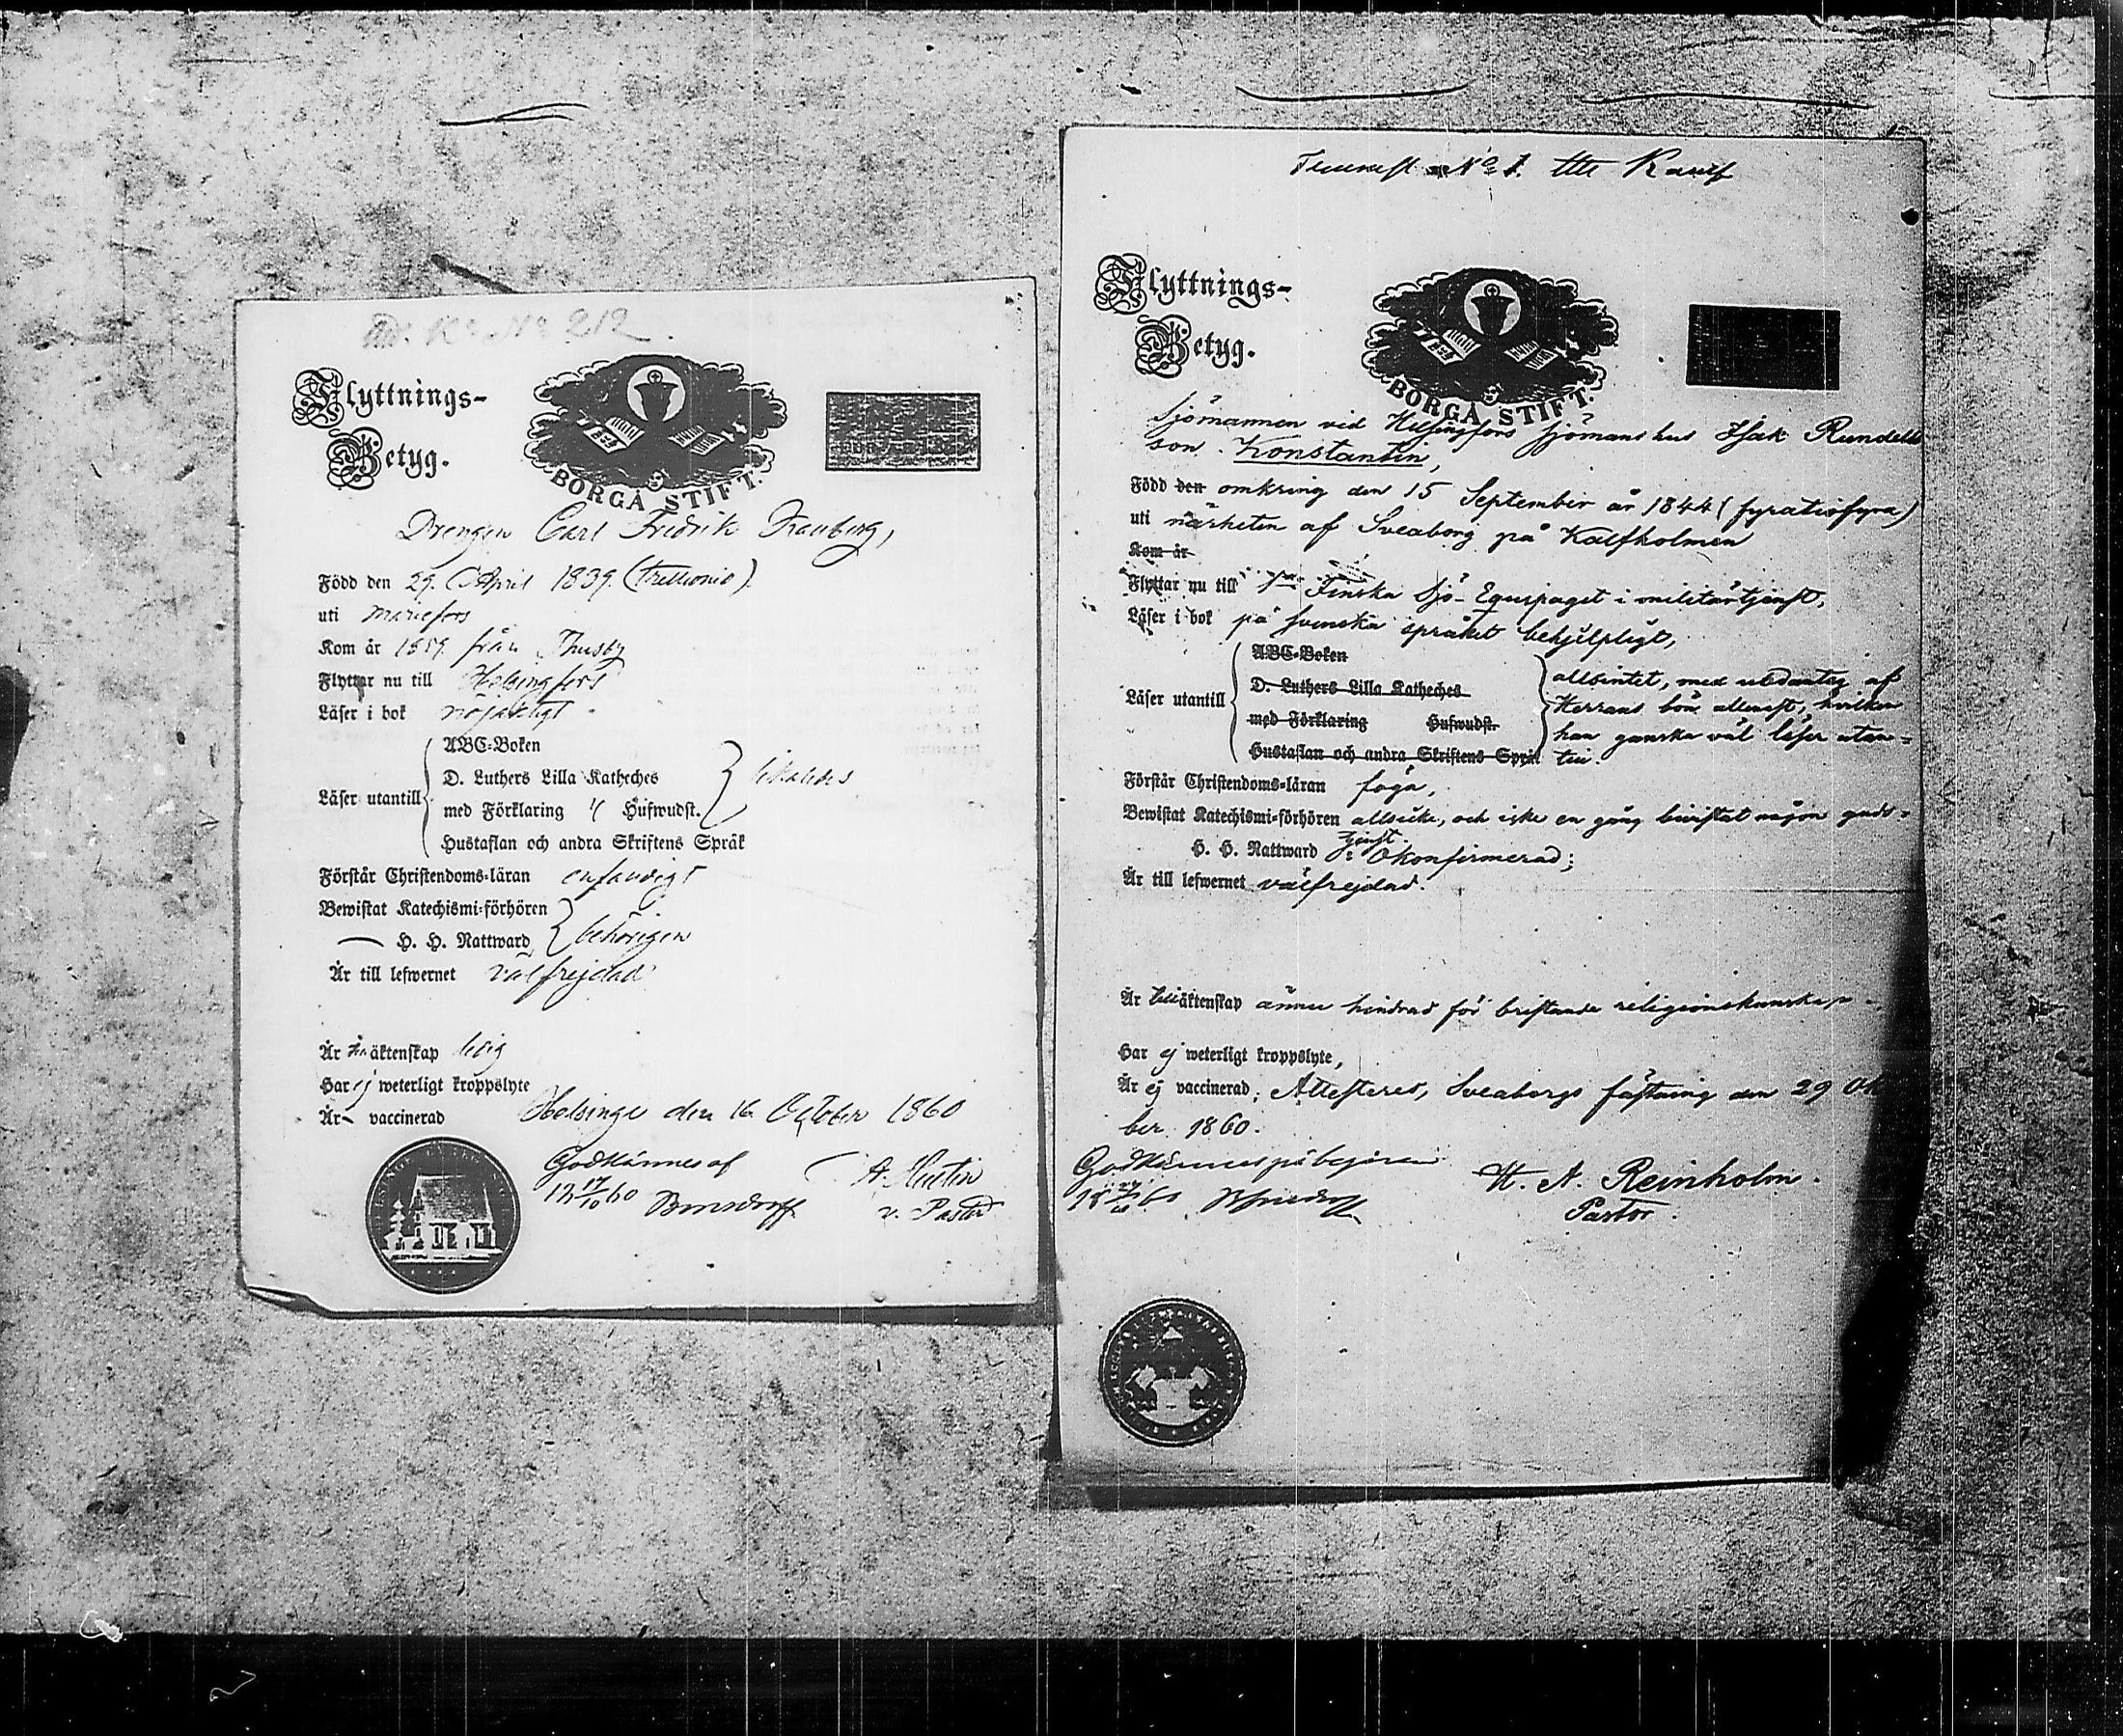 K. No 212
Flyttnings-
Betyg.
BORGÅ STIFT.
Drengen Carl Fredrik
Född den 29. April 1839. (trettionio)
uti Mariefors
Kom år 1859. från Thusby
Flyttar nu till Helsingfors
Läser i bok nöjaktigt
Läser utantill
ABC-Boken
D. Luthers Lilla Katheches
med Förklaring Hufwudst.
Hustaflan och andra Skriftens Språk
likaledes
Förstår Christendoms-läran enfaldigt
Bewistat Katechismi-förhören
H. H. Nattward
behörigen
Är till lefwernet välfrejdad
Är till äktenskap ledig
Har ej weterligt kroppslyte
Är vaccinerad
Helsinge den 16 October 1860
Godkännes af
17/10 60
v. Pastor
No 1.
Flyttnings-
Betyg.
BORGÅ STIFT.
Sjömannen vid Helsingfors sjömanshus Isak Rundells
son Konstantin,
Född den omkring den 15 September år 1844 (fyratiofyra)
uti närheten af Sveaborg på Kalfholmen
Kom år
Flyttar nu till 1sta Finska Sjö-Equipaget i militärtjenst,
Läser i bok på svenska språket behjelpligt,
Läser utantill
ABC-Boken
D. Luthers Lilla Katheches
med Förklaring Hufwudst.
Hustaflan och andra Skriftens Språk
allsintet, med undantag af
Herrans bön allenast, hvilken
han ganska väl läser utan-
till.
Förstår Christendoms-läran föga,
Bewistat Katechismi-förhören allsicke, och icke en gång bevistat någon guds-
tjenst.
H. H. Nattward : Okonfirmerad;
Är till lefwernet välfrejdad.
Är till äktenskap ännu hindrad för bristande religionskunskap
Har ej weterligt kroppslyte,
Är ej vaccinerad; Attesteres, Sveaborgs fästning den 29 Okto
ber 1860.
Godkännes på begäran
H. A. Reinholm.
Pastor.